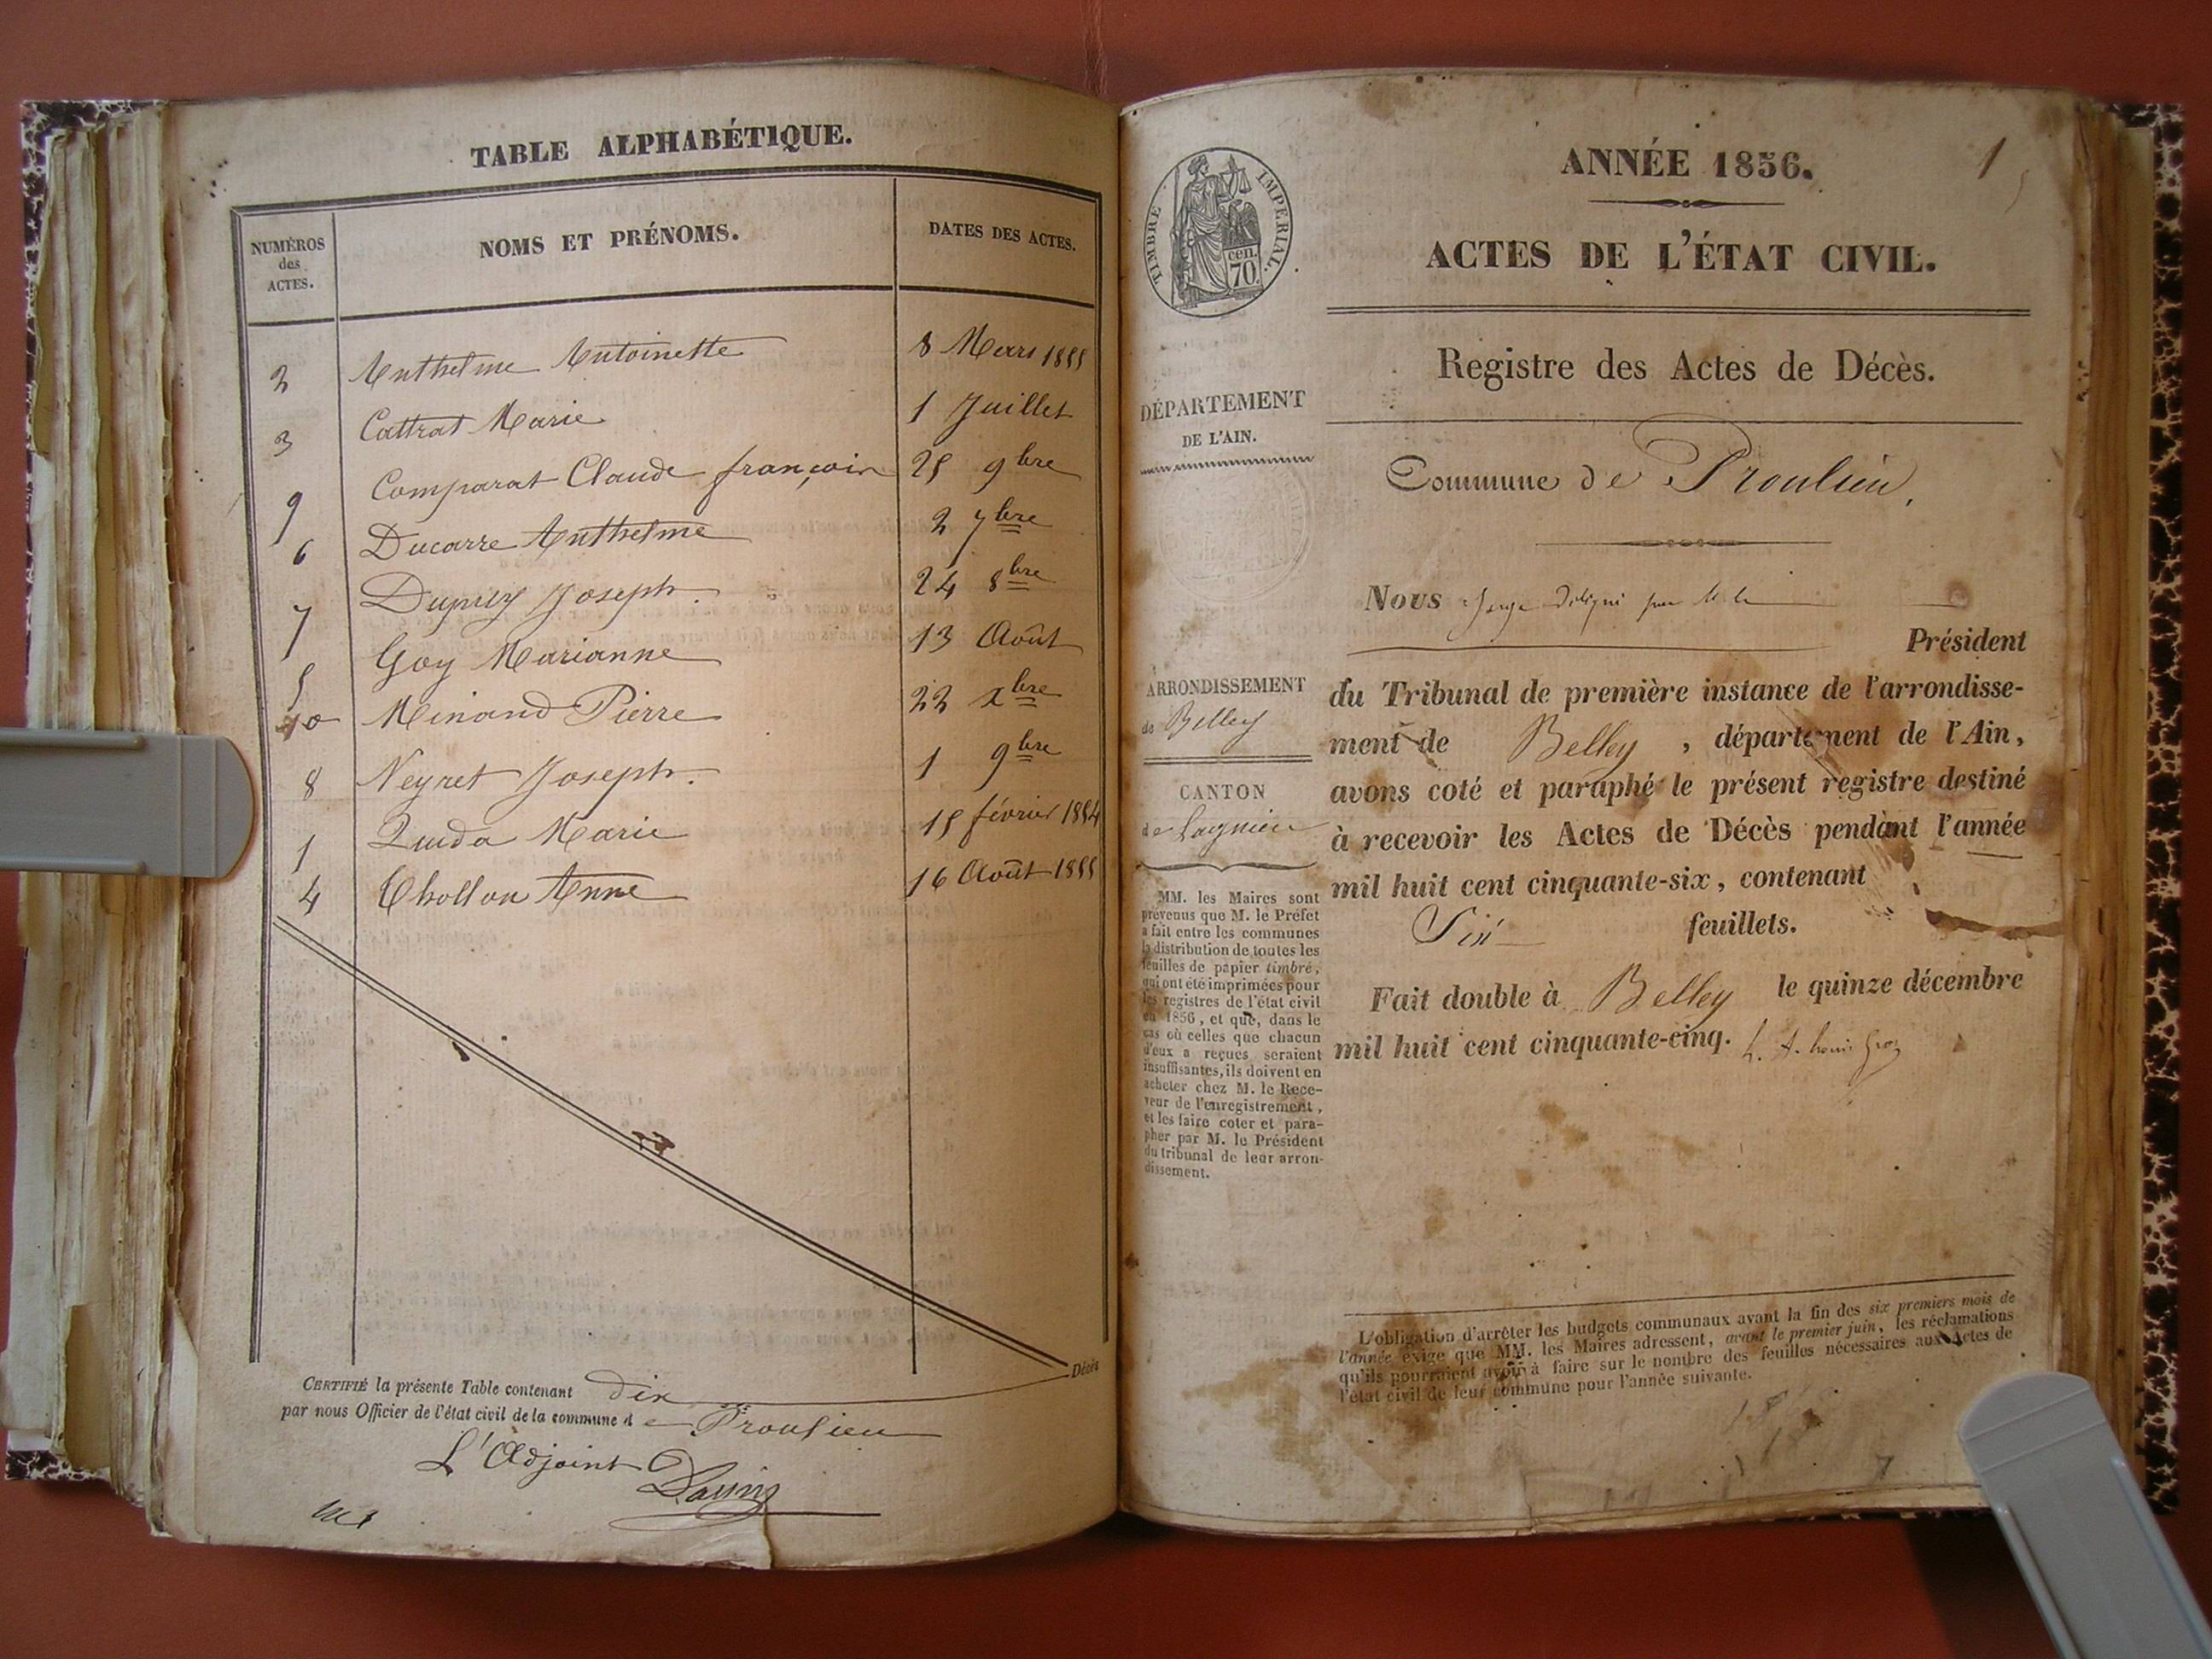 TABLE ALPHABÉTIQUE.
NUMÉROS
des
ACTES.
NOMS ET PRÉNOMS.
DATES DES ACTES.
2 Anthelme Antoinette 8 Mars 1855
3 Cattrat Marie 1 Juillet
9 Comparat Claude françois 25 9bre
6 Ducarre Anthelme 2 7bre
7 Dupuy Joseph. 24 8bre
5 Goy Marianne 13 Août
10 Minand Pierre 22 xbre
8 Neyret Joseph. 1 9bre
1 Quida Marie 15 février 1854
4 Chollon Anne 16 Août 1855
Décès
CERTIFIÉ la présente Table contenant dix
par nous Officier de l'état civil de la commune de Proulieu
L'Adjoint
1
ANNÉE 1856.
ACTES DE L'ÉTAT CIVIL.
TIMBRE IMPERIAL.
cen.
70
Registre des Actes de Décès.
DÉPARTEMENT
DE L'AIN.
Commune de Proulieu,
Nous
Président
ARRONDISSEMENT
de Belley
CANTON
de Lagnieu
du Tribunal de première instance de l'arrondisse-
ment de Belley, département de l'Ain,
avons coté et paraphé le présent registre destiné
à recevoir les Actes de Décès pendant l'année
mil huit cent cinquante-six, contenant
Six feuillets.
Fait double à Belley le quinze décembre
mil huit cent cinquante-cinq.
MM. les Maires sont
prévenus que M. le Préfet
a fait entre les communes
la distribution de toutes les
feuilles de papier timbré,
qui ont été imprimées pour
les registres de l'état civil
en 1856, et que, dans le
cas où celles que chacun
d'eux a reçues seraient
insuffisantes, ils doivent en
acheter chez M. le Rece-
veur de l'enregistrement,
et les faire coter et para-
pher par M. le Président
du tribunal de leur arron-
dissement.
L'obligation d'arrêter les budgets communaux avant la fin des six premiers mois de
l'année exige que MM. les Maires adressent, avant le premier juin, les réclamations
qu'ils pourraient avoir à faire sur le nombre des feuilles nécessaires aux Actes de
l'état civil de leur commune pour l'année suivante.